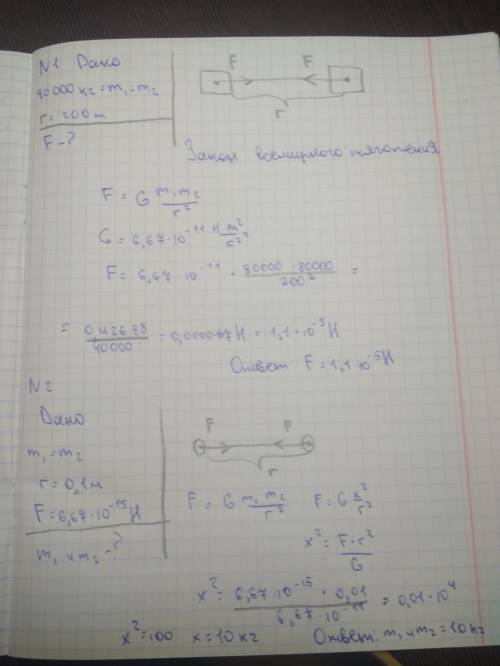 N1 Дано
80000 кг = m₁ = m₂
r = 200 m
F - ?
F F
r
Закон всемирного тяготения
F = G m₁m₂/r²
G = 6,67·10⁻¹¹ Н м²/г²
F = 6,67·10⁻¹¹ · 80000·80000/200² =
= 0,42688/40000 = 0,0000107Н = 1,1·10⁻⁵Н
Ответ: F = 1,1·10⁻⁵Н
N2
Дано
m₁ = m₂
r = 0,1м
F = 6,67·10⁻¹⁵Н
m₁ и m₂ - ?
F F
r
F = G m₁ m₂/r² F = G x²/r²
x² = F·r²/G
x² = 6,67·10⁻¹⁵ · 0,01/6,67·10⁻¹¹ = 0,01·10⁴
x² = 100 x = 10 кг Ответ: m₁ и m₂ = 10 кг